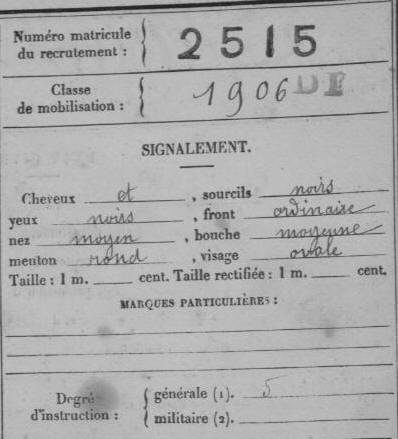 Numéro matricule
du recrutement : 2515
Classe
de mobilisation : 1906 DE
SIGNALEMENT.
Cheveux et , sourcils noirs
yeux noirs , front ordinaire
nez moyen , bouche moyenne
menton rond , visage ovale
Taille : 1 m. cent. Taille rectifiée : 1 m. cent.
MARQUES PARTICULIÈRES :
Degré
d'instruction :
générale (1). 5
militaire (2).